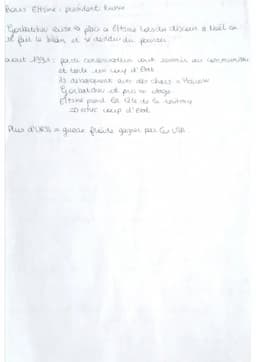 Boris Eltsine : président Russie
Gorbatchev laisse sa place à Eltsine lors du discours à Noël où
il fait le bilan et se du pouvoir.
août 1991 : partie conservateur veut revenir au communisme
et tente un coup d'Etat
Ils débarquent avec des chars à Moscou
Gorbatchev est pris en otage
Eltsine prend la tête de la
=> échec coup d'Etat.
Plus d'URSS = guerre froide gagnée par les USA